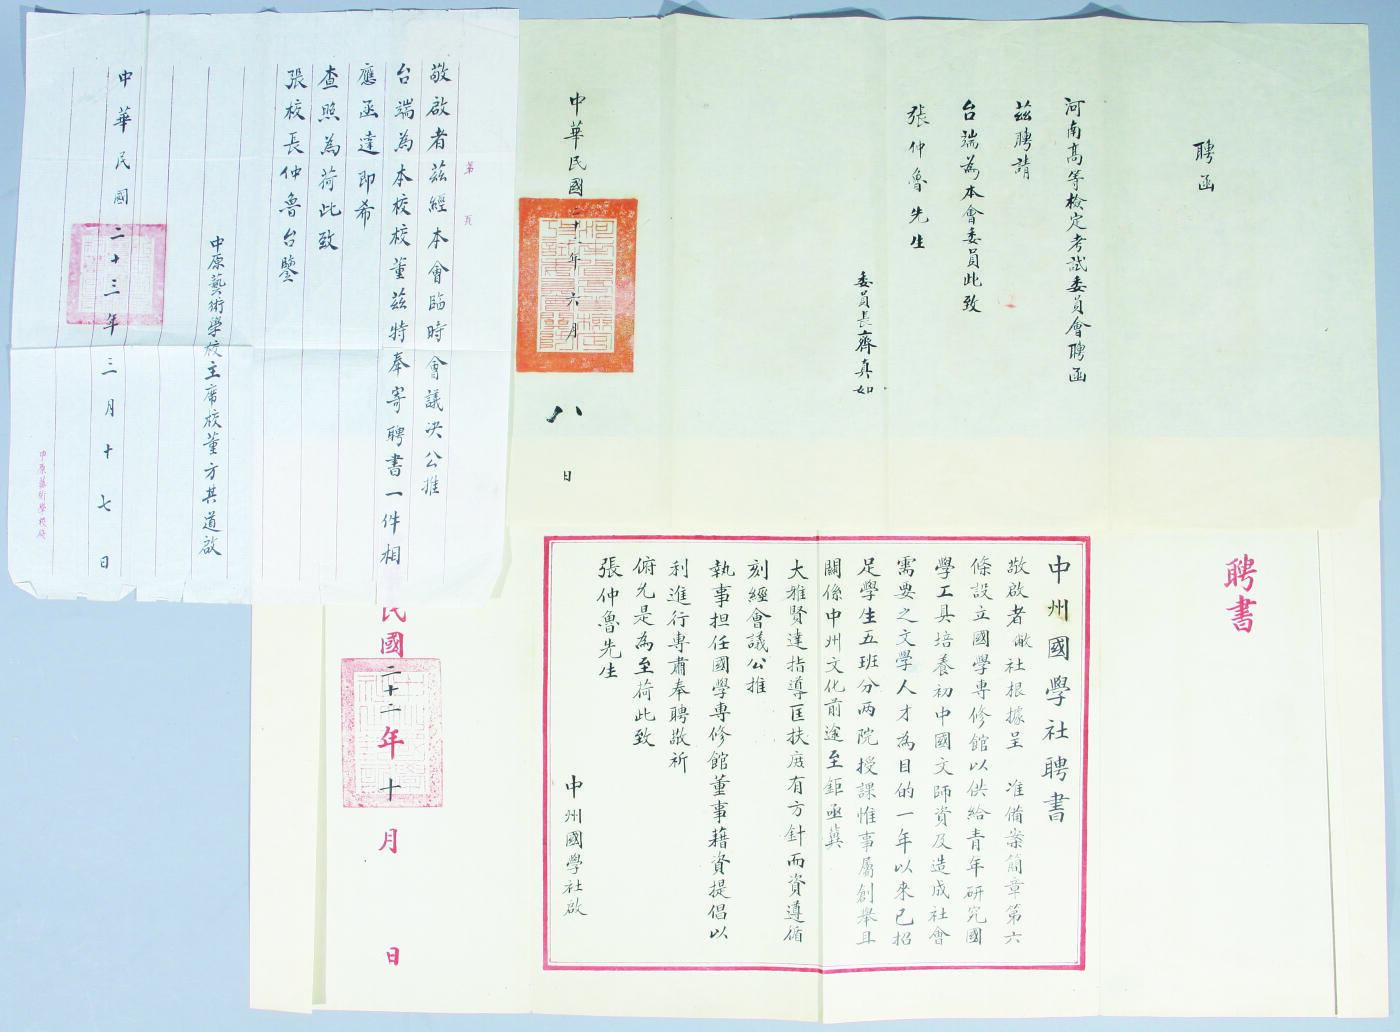 聘函
河南高等檢定考試委員會聘函
茲聘請
台端為本會委員此致
張仲魯先生
委員長齊真如
中華民國二十一年六月八日
第 頁
敬啟者茲經本會臨時會議決公推
台端為本校校董茲特奉寄聘書一件相
應函達即希
查照為荷此致
張校長仲魯台鑒
中原藝術學校主席校董方其道啟
中華民國二十三年三月十七日
中原藝術學校
聘書
中州國學社聘書
敬啟者敝社根據呈 准備案簡章第六
條設立國學專修館以供給青年研究國
學工具培養初中國文師資及造成社會
需要之文學人才為目的一年以來已招
足學生五班分兩院授課惟事屬創舉且
關係中州文化前途至鉅亟冀
大雅賢達指導匡扶庶有方針而資遵循
刻經會議公推
執事担任國學專修館董事藉資提倡以
利進行專肅奉聘敬祈
俯允是為至荷此致
張仲魯先生
中州國學社啟
民國二十二年十月 日